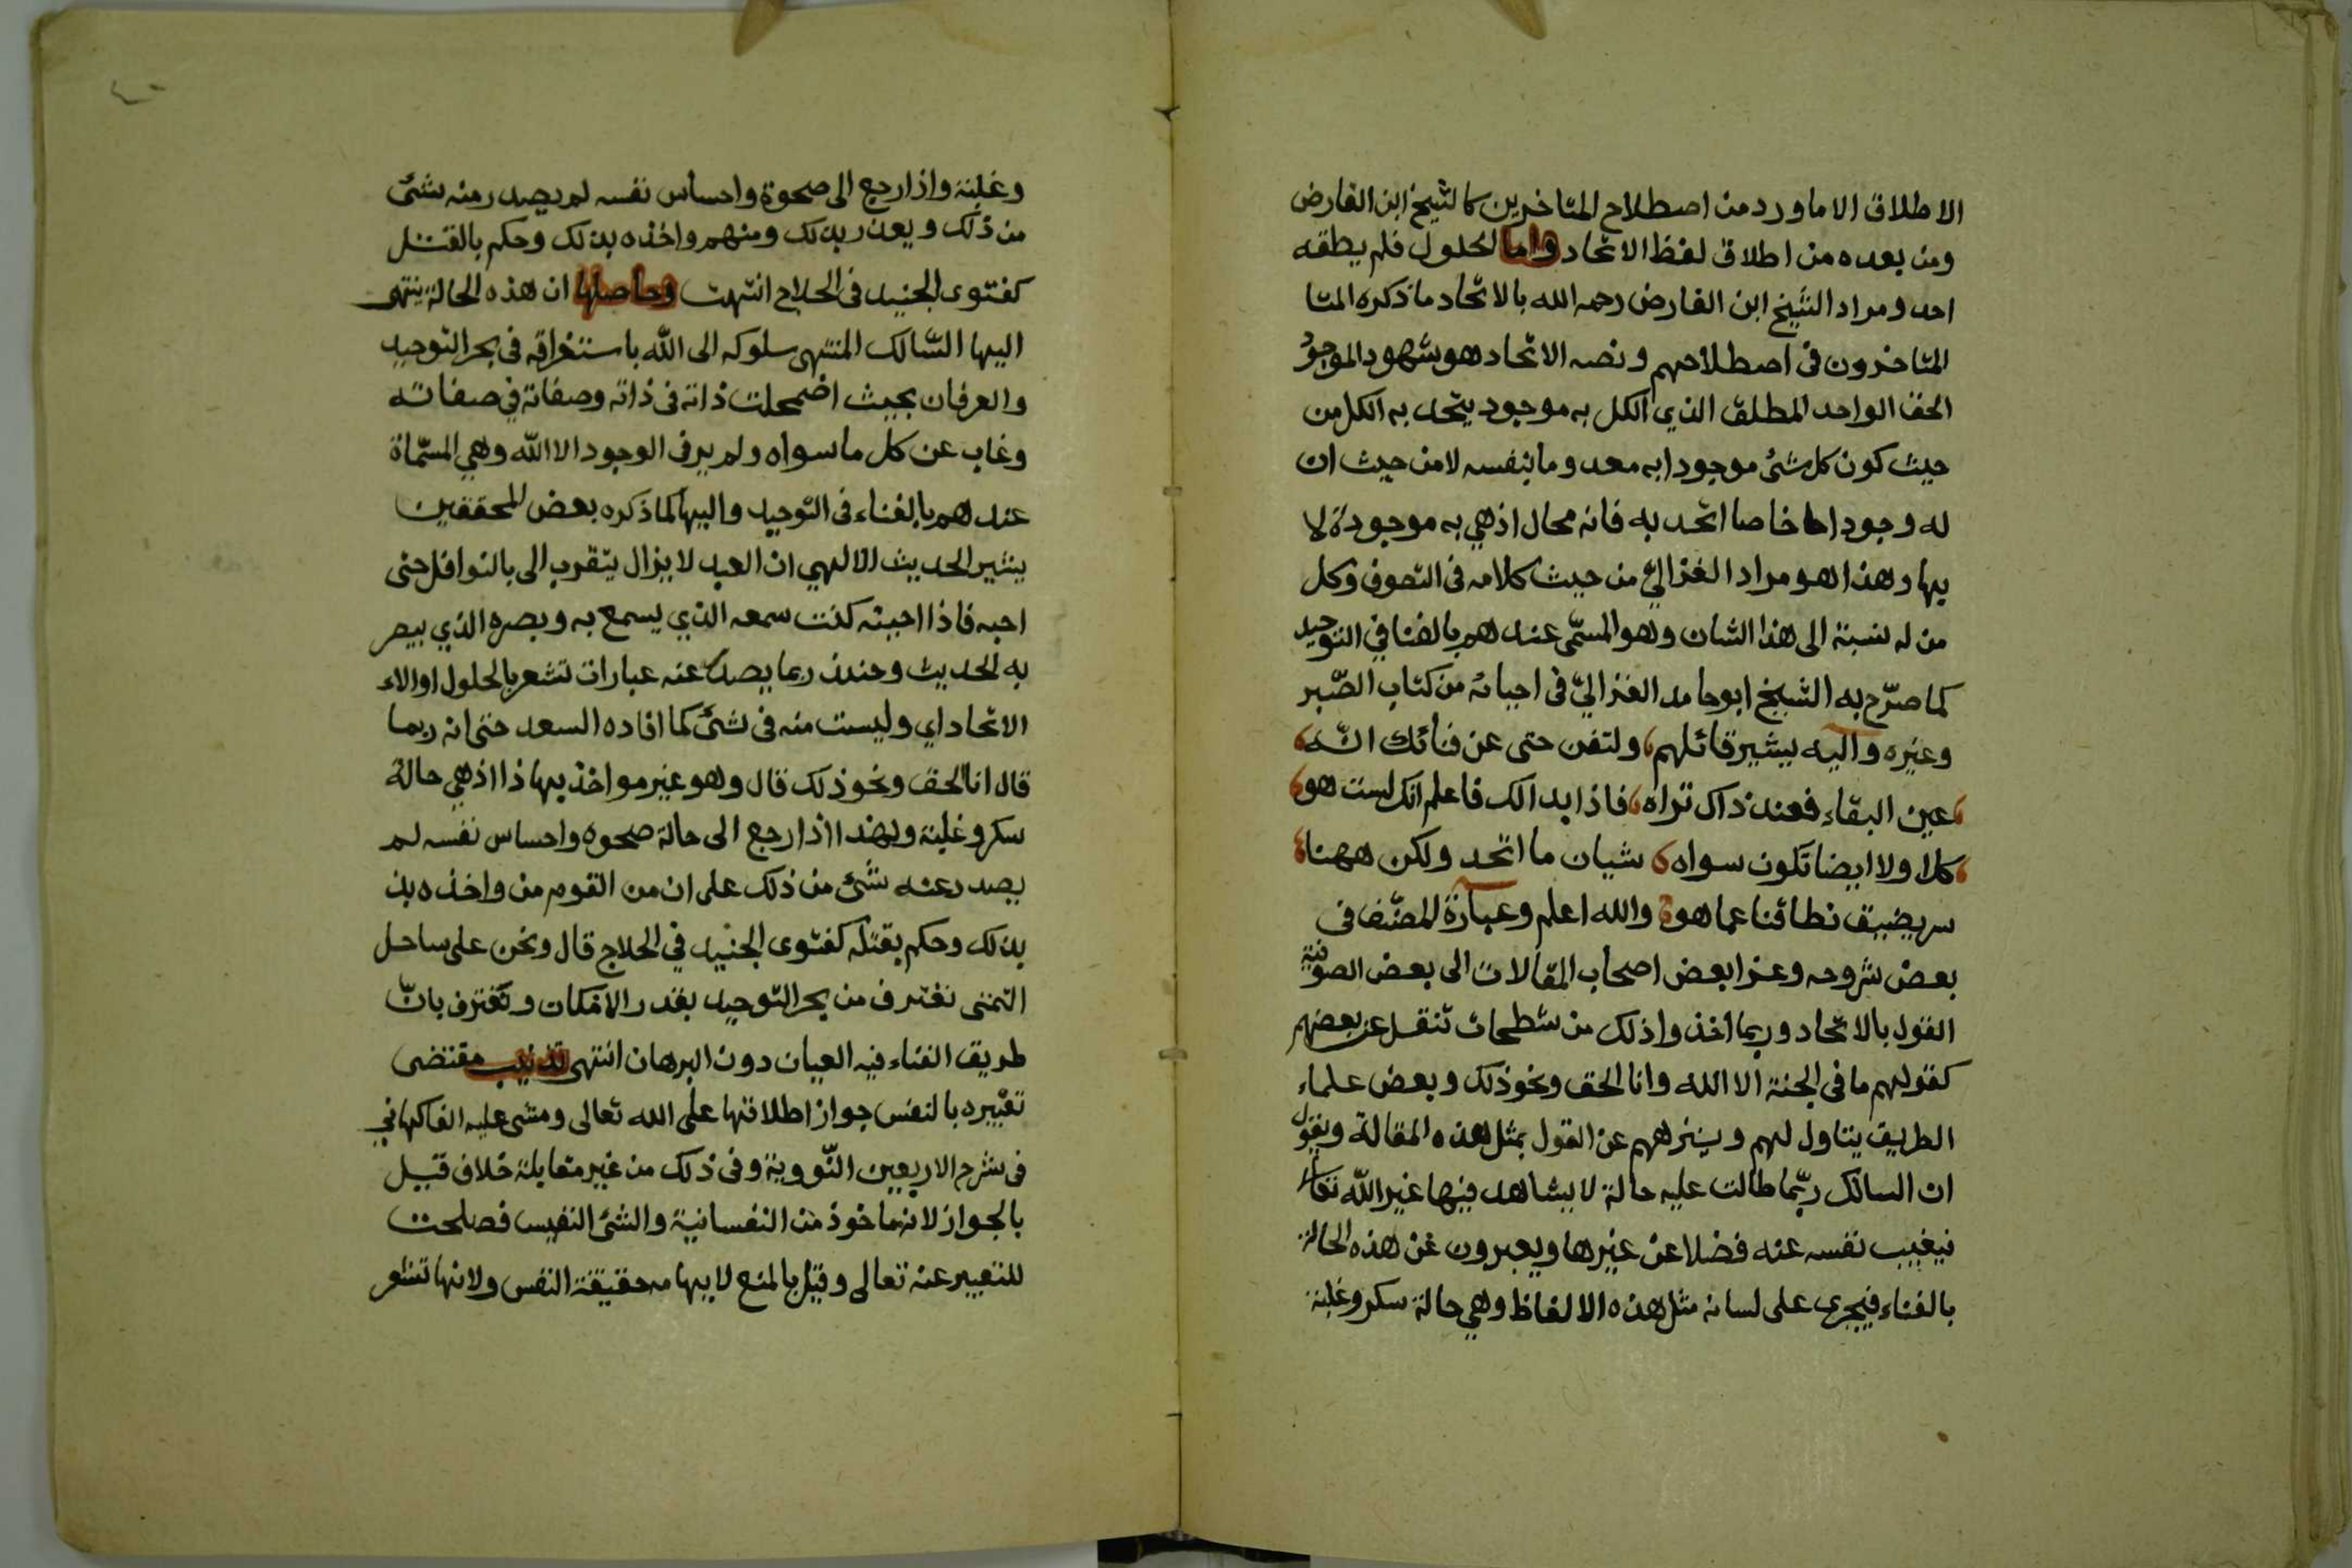 الاطلاق الا ما ورد من اصطلاح المتاخرين كالشيخ ابن الفارض
ومن بعده من اطلاق لفظ الاتحاد واما الحلول فلم يطقه
احد ومراد الشيخ ابن الفارض رحمه الله بالاتحاد ما ذكره المتا
المتاخرون في اصطلاحهم ونصه الاتحاد هو شهود الموجود
الحق الواحد المطلق الذي الكل به موجود يتحد به الكل من
حيث كون كل شئ موجودا به معدوما بنفسه لا من حيث ان
له وجودا خاصا اتحد به فانه محال اذ هي به موجودة لا
بها وهذا هو مراد الغزالي من حيث كلامه في التصوف وكل
من له نسبة الى هذا الشان وهو المسمّى عندهم بالفنا في التوحيد
كما صرّح به الشيخ ابو حامد الغزاليّ في احيائه من كتاب الصّبر
وغيره واليه يشير قائلهم ولتفن حتى عن فنائك انّه
عين البقاء فعند ذاك تراه فاذا بدا لك فاعلم انك لست هو
كلا ولا ايضا تكون سواه شيان ما اتحد ولكن ههنا
سر يضيق نطاقنا عما هو والله اعلم وعبارة المصنّف في
بعض شروحه وعزا بعض اصحاب المقالات الى بعض الصوفية
القول بالاتحاد وربما اخذوا ذلك من شطحات تنقل عن بعضهم
كقولهم ما في الجنة الا الله وانا الحق ونحو ذلك وبعض علماء
الطريق يتاول لهم وينزههم عن القول بمثل هذه المقالة ويقول
ان السالك ربّما طالت عليه حالة لا يشاهد فيها غير الله تعالى
فيغيب نفسه عنه فضلا عن غيرها ويعبرون عن هذه الحالة
بالفناء فيجرى على لسانه مثل هذه الالفاظ وهي حالة سكر وغلبة
وغلبة واذا رجع الى صحوة واحساس نفسه لم يصدر منه شئ
من ذلك ويعذر بذلك ومنهم واخذه بذلك وحكم بالقتل
كفتوى الجنيد في الحلاج انتهت وحاصلها ان هذه الحالة ينتهى
اليها السّالك المنتهى سلوكه الى الله باستغراقه في بحر التوحيد
والعرفان بحيث اضمحلت ذاته في ذاته وصفاته في صفاته
وغاب عن كل ما سواه ولم ير في الوجود الا الله وهي المسمّاة
عندهم بالفناء في التوحيد واليها كما ذكره بعض المحققين
يشير الحديث الالهي ان العبد لا يزال يتقرب الى بالنوافل حتى
احبه فاذا احببته كنت سمعه الذي يسمع به وبصره الذي يبصر
به الحديث وحندذ ربما يصدر عنه عبارات تشعر بالحلول او الاء
الاتحاد اي وليست منه في شئ كما افاده السعد حتى انه ربما
قال انا الحق ونحو ذلك قال وهو غير مواخذ بها ذا اذ هي حالة
سكر وغلبة ولهذا اذا رجع الى حالة صحوه واحساس نفسه لم
يصدر عنه شئ من ذلك على ان من القوم من واخذه بذ
بذلك وحكم بقتله كفتوى الجنيد في الحلاج قال ونحن على ساحل
التمنى نغترف من بحر التوحيد بقدر الامكان ونعترف بانّ
طريق الفناء فيه العيان دون البرهان انتهى تذنيب مقتضى
تعبيره بالنفس جواز اطلاقها على الله تعالى ومشى عليه الفاكهاني
في شرح الاربعين النّووية وفي ذلك من غير مقابلة خلاف قيل
بالجواز لانه ماخوذ من النفسانية والشئ النفيس فصلحت
للتعبير عنه تعالى وقيل بالمنع لايهامه حقيقة النفس ولانها تشعر